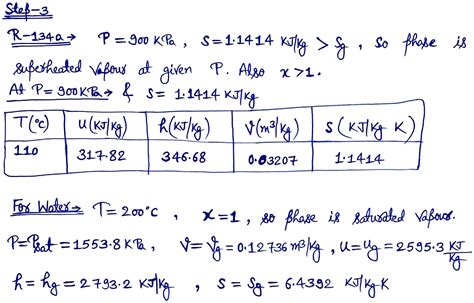 Step-3
R-134a→ P = 900 KPa, S = 1.1414 KJ/kg > Sg, so phase is
superheated vapour at given P. Also x > 1.
At P = 900 KPa → & S = 1.1414 KJ/kg
T(°C) u(KJ/kg) h(KJ/kg) V(m³/kg) S(KJ/kg K)
110 317.82 346.68 0.03207 1.1414
For Water→ T = 200°C, x = 1, so phase is saturated vapour.
P = Psat = 1553.8 KPa, V = Vg = 0.12736 m³/kg, u = ug = 2595.3 KJ/kg
h = hg = 2793.2 KJ/kg, S = Sg = 6.4392 KJ/kg-K